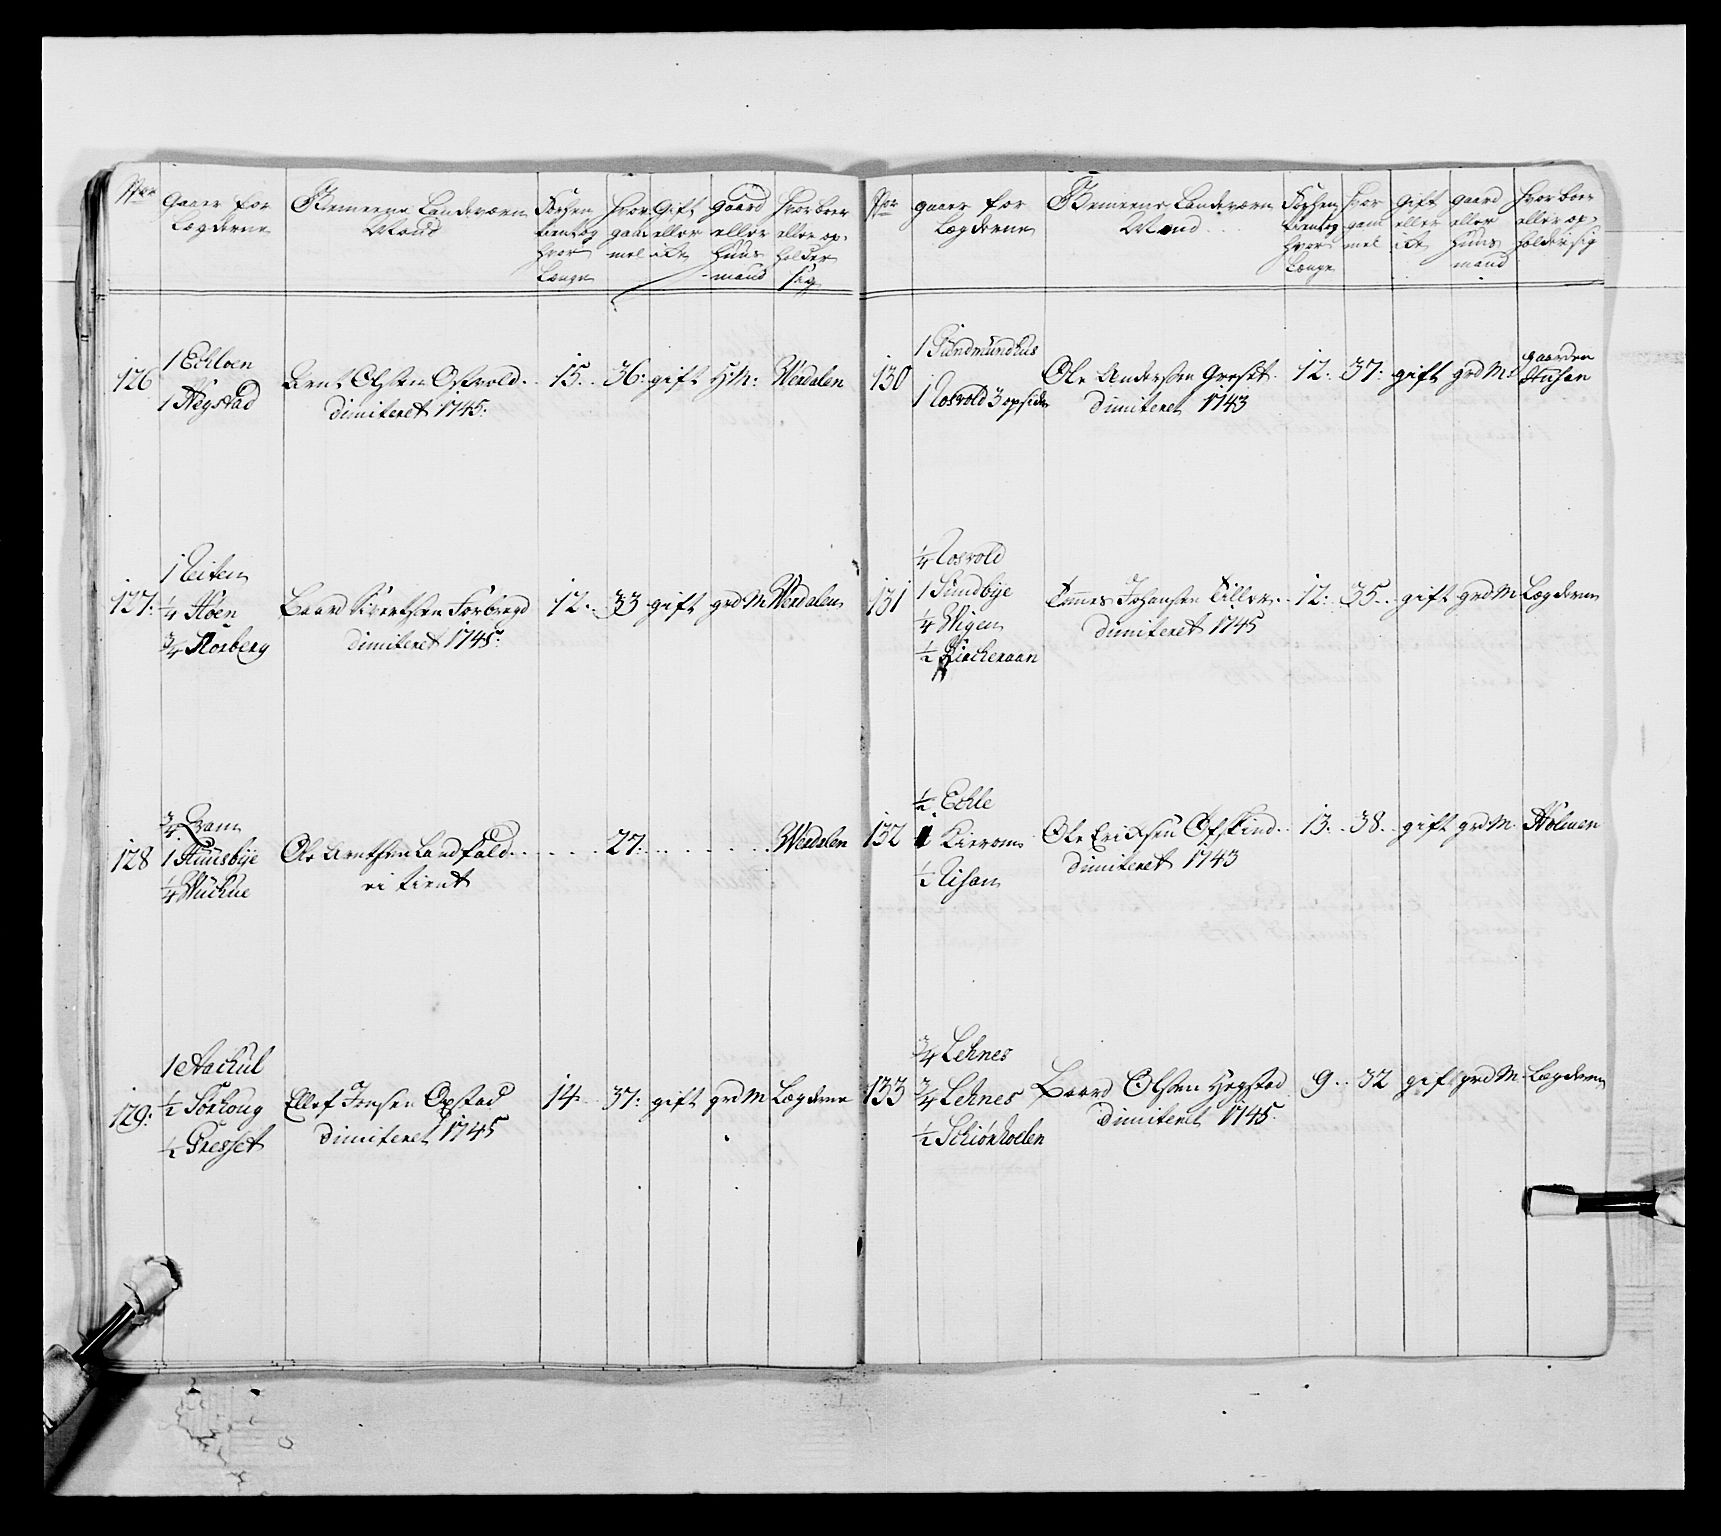 No
gaarer for
Legderne
Gemeene Landeværn
Mand
Hvor
gam
mel
Gift
eller
ikke
gaard
eller
huus
mand
Hvor boer
eller op-
holder
sig
126
1 Echloen
1 Hegstad
Arnt Olsen Ostvold
dimiteret 1745.
15.
36:
gift
H:M:
Werdalen
127:
1 Reiten
1/4 Hoen
3/4 Norberg
Baard Siversen Forbregd
dimiteret 1745:
12.
33
gift
grd M
Werdalen
128
3/4 Qvam
1 Huusbye
1/4 Muchue
Ole Arntsen Landfald
ei tient
27:
Werdalen
129:
1 Aachul
1/2 Sorhoug
1/2 Fresset
Ellef Joensen Opstad
dimiteret 1745
14
37:
gift
grd M
Legderne
No
gaarer for
Legderne
Gemeene Landeværn
Mand
Hvor
gam
mel
gift
eller
ikke
gaard
eller
huus
mand
Hvor boer
eller op-
holder sig
130
1 Sundmundhus
1 Rosvold 3 opsidr
Ole Andersen Greset
dimiteret 1743
12.
37:
gift
grd M:
gaarden
Stusan
131
1/4 Rosvold
1 Sundbye
1/4 Wigen
1/2 Kircheraan
Tomas Johansen Tiller
dimiteret 1745
12:
35.
gift
grd M
Legderne
132
1/2 Echle
1 Kierom
1/2 Risan
Ole Ericksen Ofskind
dimiteret 1743
13.
38.
gift
grd M.
Holmen
133
3/4 Lehnes
3/4 Lehnes
1/2 Schiønholen
Baard Olsen Hegstad
dimiteret 1745.
9.
32
gift
grd M.
Legderne